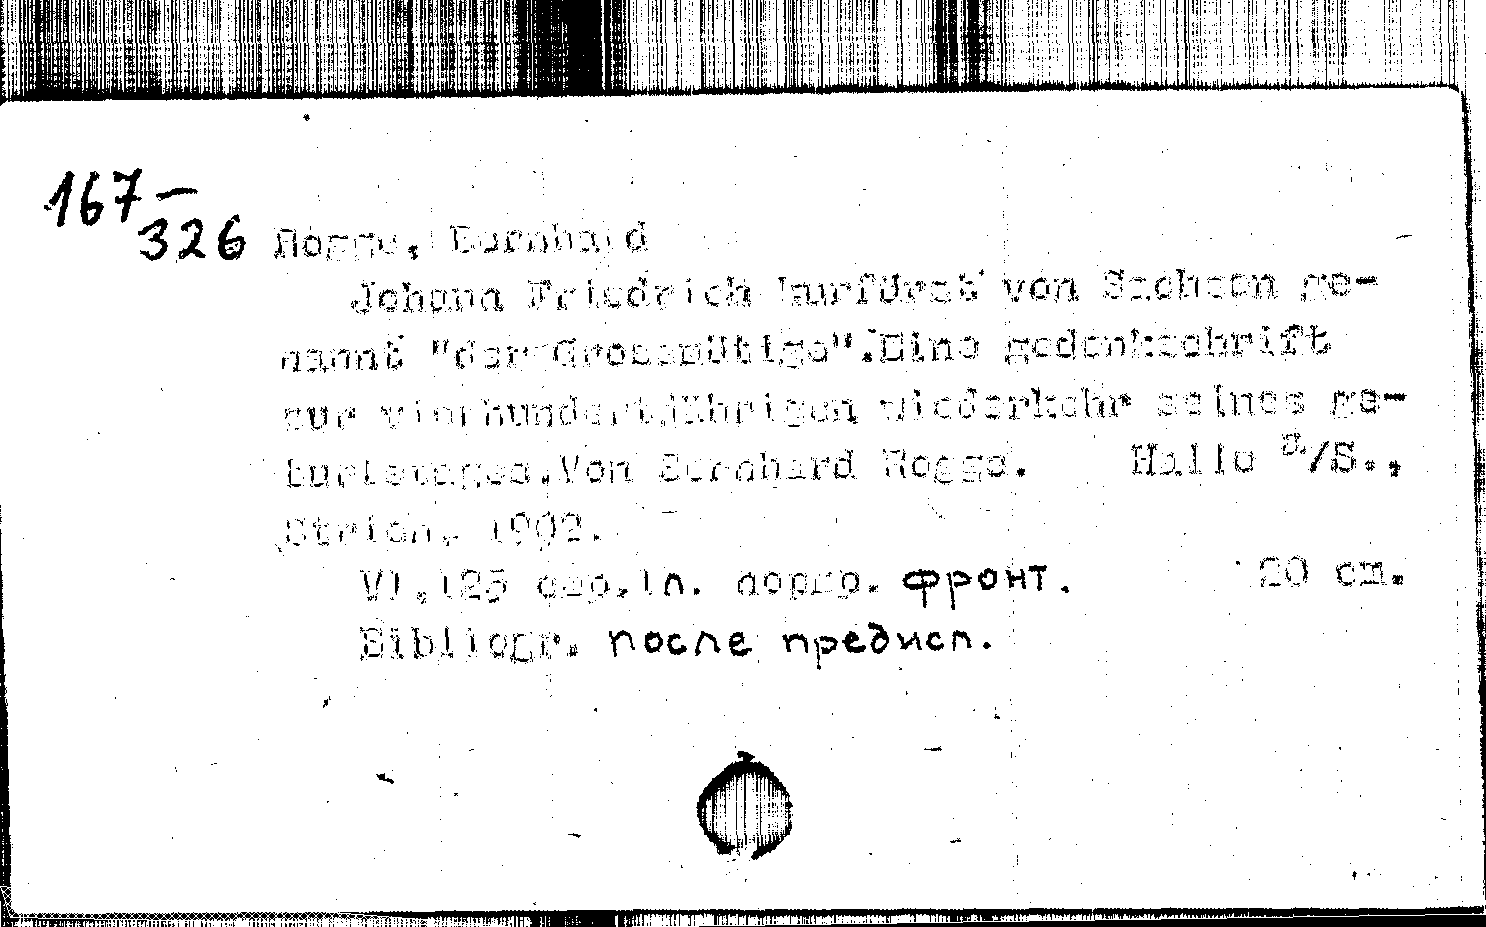 167-
326 Rogge, Bernhard
Johann Friedrich Kurfürst von Sachsen ge-
nannt "der Grossmütige".Eine gedenkschrift
zur vierhundertjährigen wiederkehr seines ge-
burtstages.Von Bernhard Rogge. Halle a/S.,
Strien, 1902.
VI,125 стр.1л. портр. фронт. 20 см.
Bibliogr. после предисл.